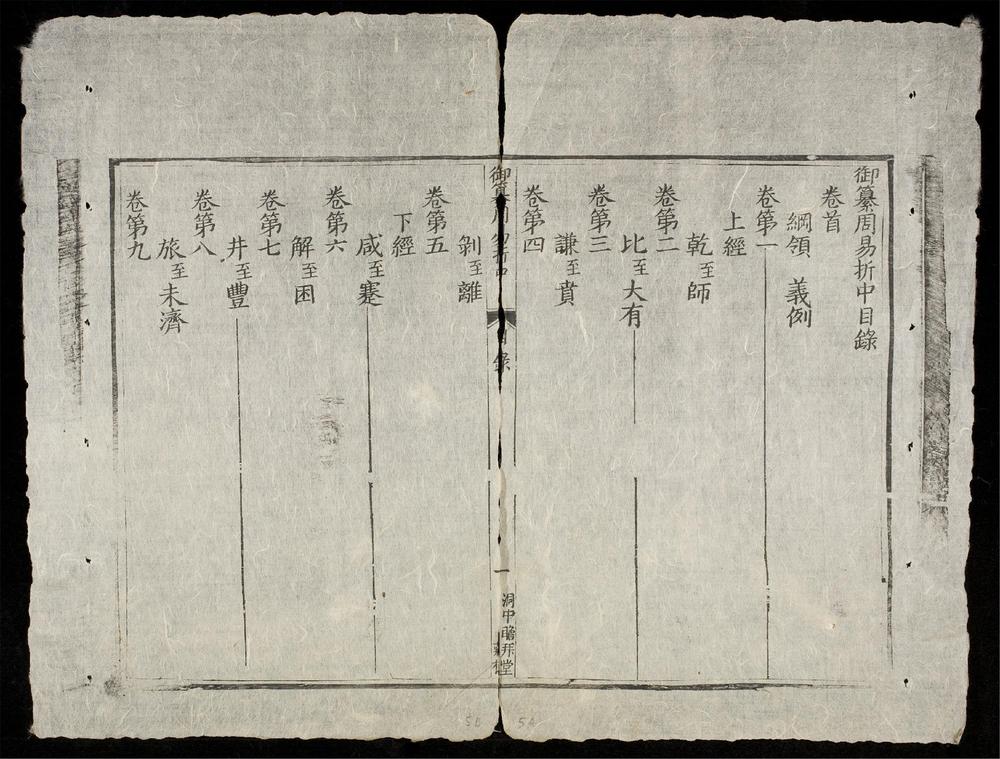 御纂周易折中目錄
卷首
綱領　義例
卷第一
上經
乾至師
卷第二
比至大有
卷第三
謙至賁
卷第四
御纂周易折中
目錄
一
洞中瞻拜堂
剝至離
卷第五
下經
咸至蹇
卷第六
解至困
卷第七
井至豐
卷第八
旅至未濟
卷第九
5b
5a